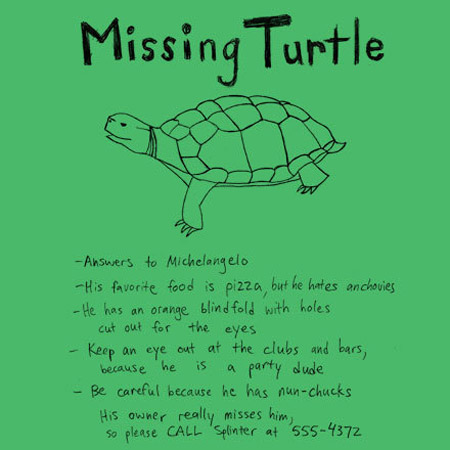 Missing Turtle
- Answers to Michelangelo
- His favorite food is pizza, but he hates anchovies
- He has an orange blindfold with holes
cut out for the eyes
- Keep an eye out at the clubs and bars,
because he is a party dude
- Be careful because he has nun-chucks
His owner really misses him,
so please CALL Splinter at 555-4372